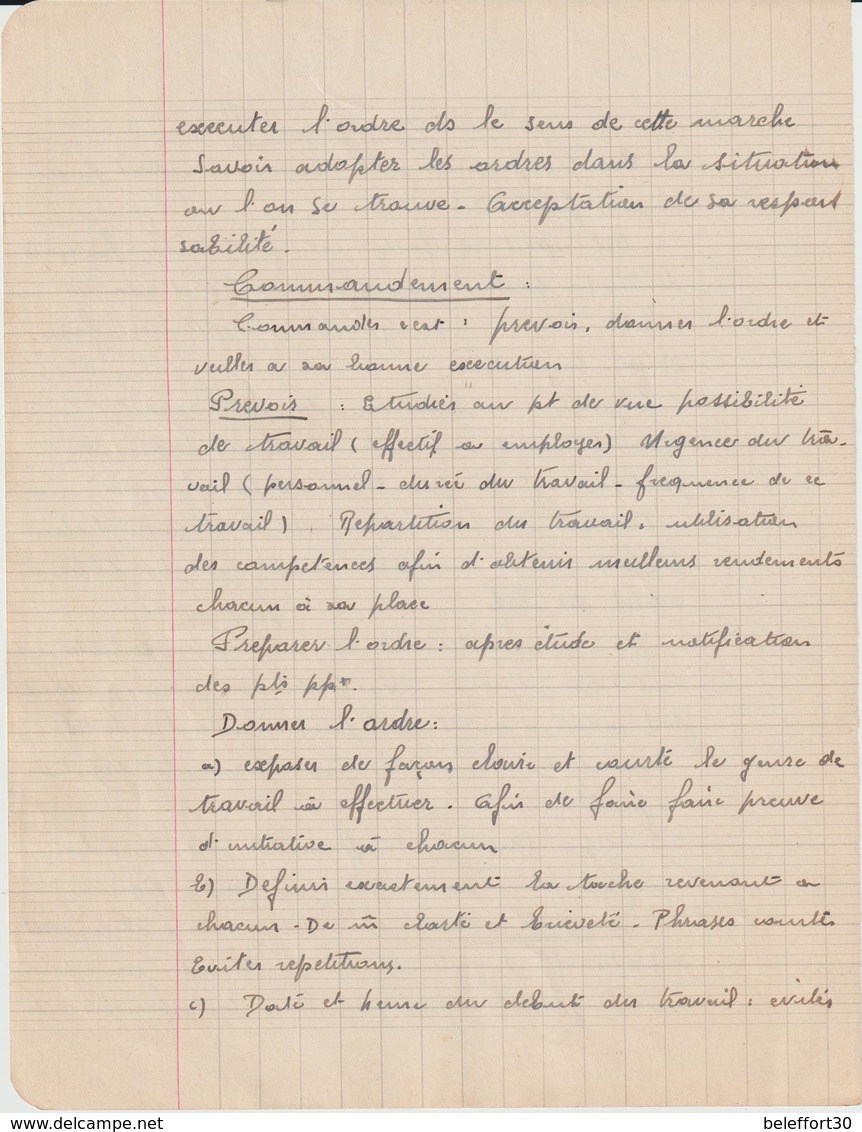 executer l'ordre ds le sens de cette marche
Savoir adapter les ordres dans la situation
ou l'on se trouve - Acceptation de sa respon
sabilité.
Commandement :
Commander c'est : prevoir, donner l'ordre et
veiller a sa bonne execution
Prevoir : Etudier au pt de vue possibilité
de travail ( effectif a employer) Urgence du tra-
vail ( personnel - durée du travail - frequence de ce
travail) Repartition du travail, utilisation
des competences afin d'obtenir meilleurs rendements
chacun à sa place
Preparer l'ordre : apres étude et notification
des pts ppx.
Donner l'ordre:
a) exposer de façon claire et courte le genre de
travail à effectuer. Afin de faire faire preuve
d'initiative à chacun
b) Definir exactement la tache revenant a
chacun - De m̄ clarté et brieveté - Phrases courtes
Eviter repetitions.
c) Date et heure du debut du travail : eviter
www.delcampe.net
beleffort30